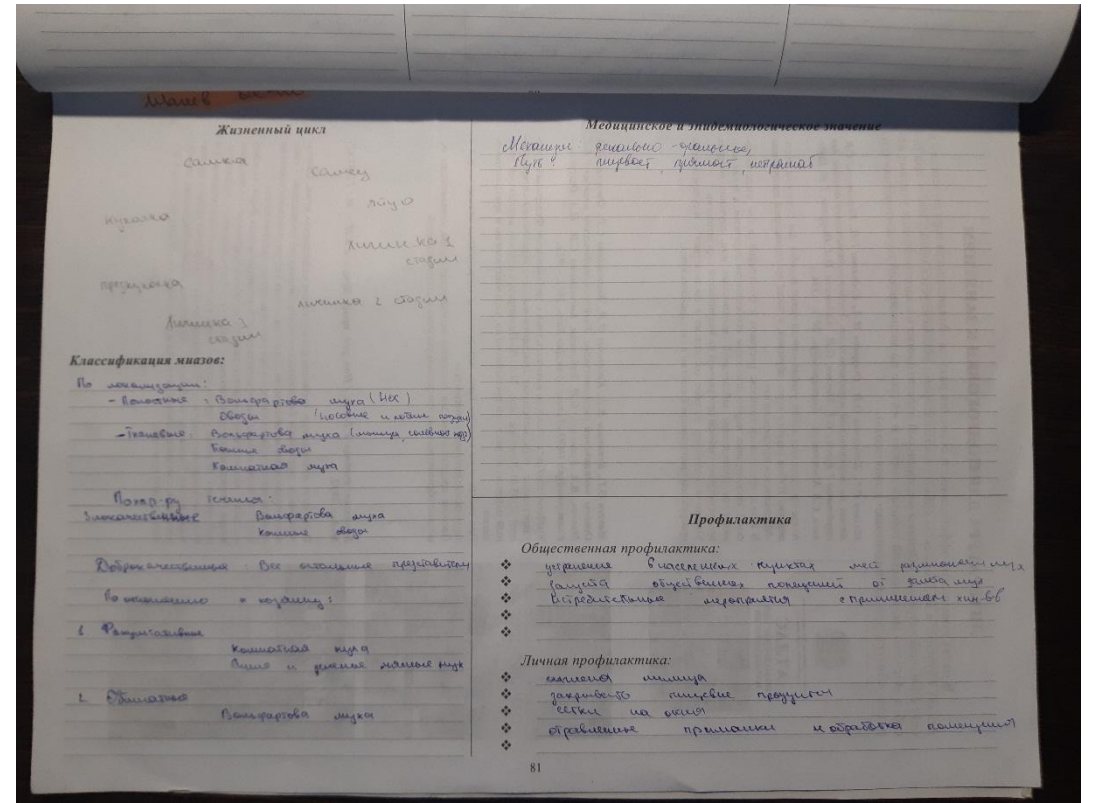 Жизненный цикл
самка
самец
яйцо
куколка
личинка 1
стадии
предкуколка
личинка 2 стадии
личинка 3
стадии
Классификация миазов:
По локализации:
- Полостные : Вольфартова муха (
Овозы (носовые и
- Тканевые : Вольфартова муха (
Кожные оводы
Комнатная муха
По хар-ру течения:
Злокачественные Вольфартова муха
кожные оводы
Доброкачественные : Все остальные представители
По отношению к хозяину:
1 Факультативные
Комнатная муха
и мясные мухи
2. Облигатные
Вольфартова муха
Медицинское и эпидемиологическое значение
Механизм: фекально-оральное,
Путь:
Профилактика
Общественная профилактика:
❖ устранение в населенных пунктах мест размножения мух
❖ защита общественных помещений от мух
❖ истребительные мероприятия с применением хим-вв
❖
❖
Личная профилактика:
❖ гигиена
❖ закрывать пищевые продукты
❖ сетки на окна
❖ отравленные приманки и обработка помещений
❖
81